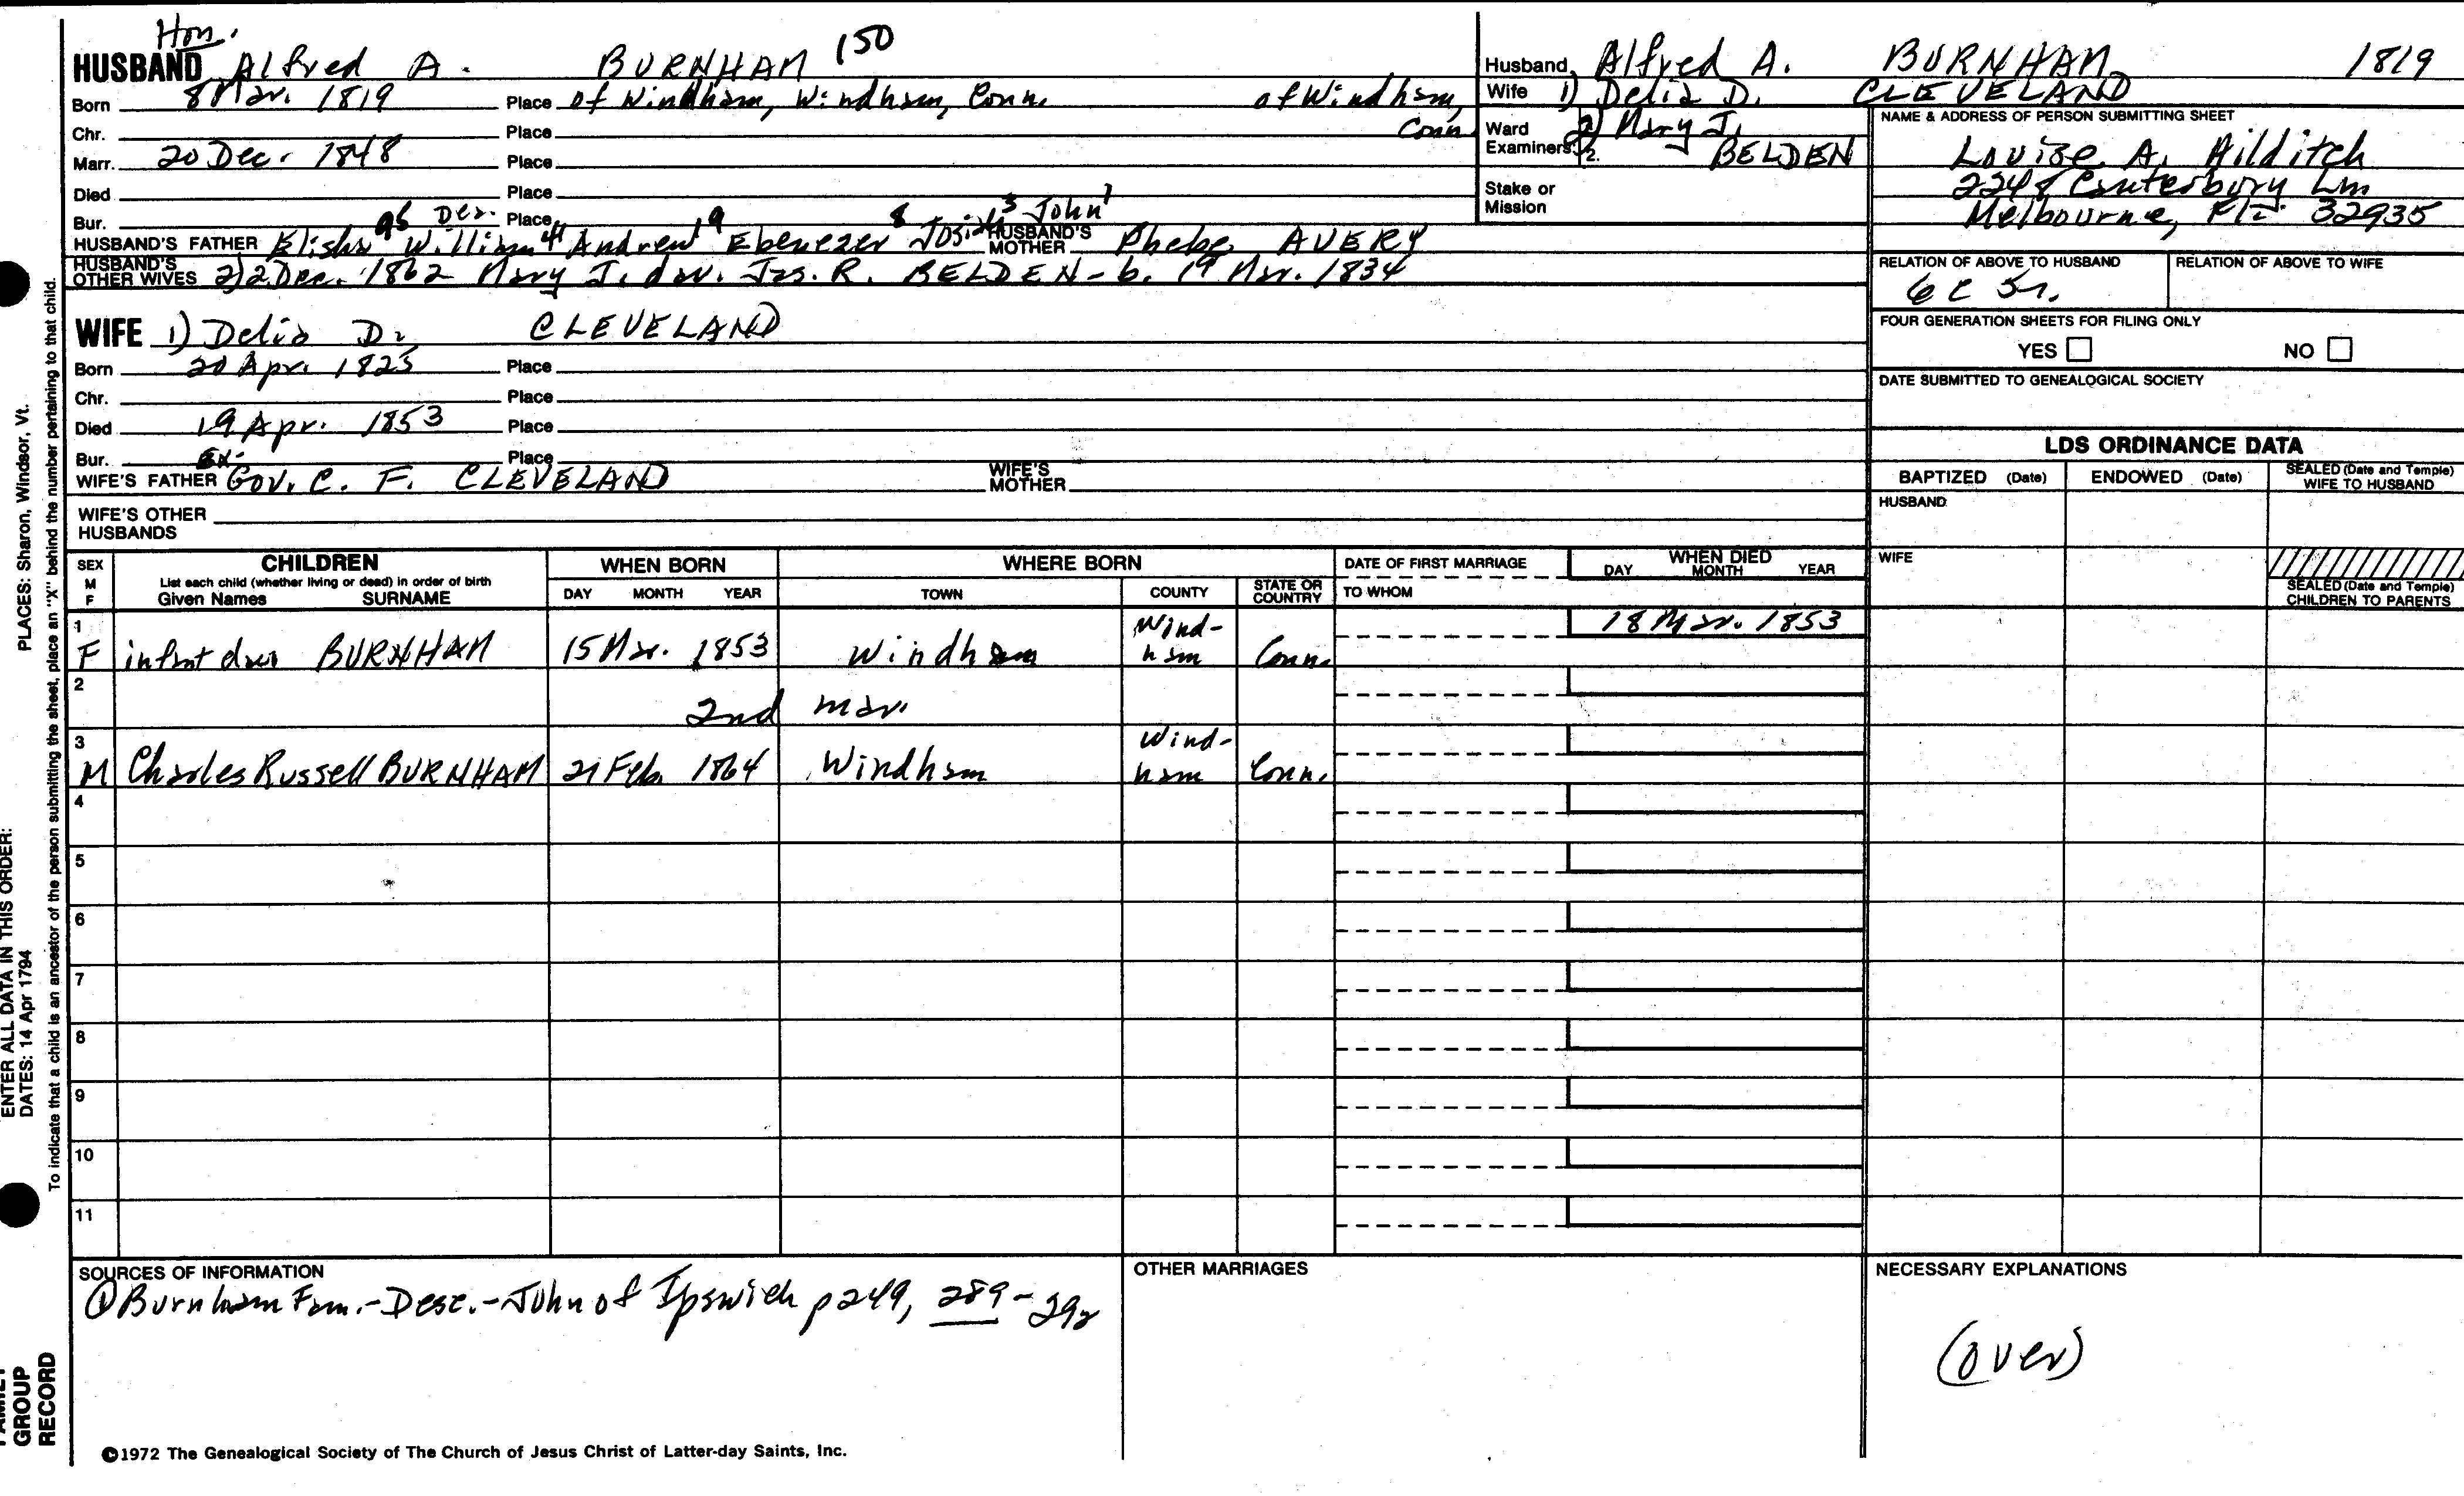 Hon.
HUSBAND Alfred A. BURNHAM 150
Born 8 Mar. 1819 Place of Windham, Windham, Conn. of Windham, Conn
Chr. Place
Marr. 20 Dec. 1848 Place
Died Place
Bur. Place
96 Des. 19 8 3 1
HUSBAND'S FATHER Elisha William 4 Andrew Ebenezer Josiah John HUSBAND'S MOTHER Phebe AVERY
HUSBAND'S OTHER WIVES 2) 2 Dec. 1862 Mary J. dau. Jas. R. BELDEN - b. 19 Mar. 1834
WIFE 1) Delia D. CLEVELAND
Born 20 Apr. 1825 Place
Chr. Place
Died 19 Apr. 1853 Place
Bur. Place
Ex-
WIFE'S FATHER Gov. C. F. CLEVELAND WIFE'S MOTHER
WIFE'S OTHER HUSBANDS
Husband Alfred A. BURNHAM 1819
Wife 1) Delia D. CLEVELAND
Ward 2) Mary J. BELDEN
Examiners: 2.
Stake or Mission
NAME & ADDRESS OF PERSON SUBMITTING SHEET
Louise A. Hilditch
2248 Canterbury Ln
Melbourne, Fla. 32935
RELATION OF ABOVE TO HUSBAND RELATION OF ABOVE TO WIFE
6 C 5r.
FOUR GENERATION SHEETS FOR FILING ONLY
YES NO
DATE SUBMITTED TO GENEALOGICAL SOCIETY
LDS ORDINANCE DATA
BAPTIZED (Date) ENDOWED (Date) SEALED (Date and Temple) WIFE TO HUSBAND
HUSBAND
WIFE
SEALED (Date and Temple) CHILDREN TO PARENTS
SEX M F
CHILDREN
List each child (whether living or dead) in order of birth
Given Names SURNAME
WHEN BORN
DAY MONTH YEAR
WHERE BORN
TOWN COUNTY STATE OR COUNTRY
DATE OF FIRST MARRIAGE
TO WHOM
WHEN DIED
DAY MONTH YEAR
1 F infant dau BURNHAM 15 Mar. 1853 Windham Wind-ham Conn. 18 Mar. 1853
2 2nd mar.
3 M Charles Russell BURNHAM 21 Feb. 1864 Windham Wind-ham Conn.
4
5
6
7
8
9
10
11
SOURCES OF INFORMATION
① Burnham Fam. - Desc. - John of Ipswich p 249, 289 - 292
OTHER MARRIAGES
NECESSARY EXPLANATIONS
(over)
©1972 The Genealogical Society of The Church of Jesus Christ of Latter-day Saints, Inc.
PLACES: Sharon, Windsor, Vt.
ENTER ALL DATA IN THIS ORDER:
DATES: 14 Apr 1794
To indicate that a child is an ancestor of the person submitting the sheet, place an "X" behind the number pertaining to that child.
FAMILY
GROUP
RECORD